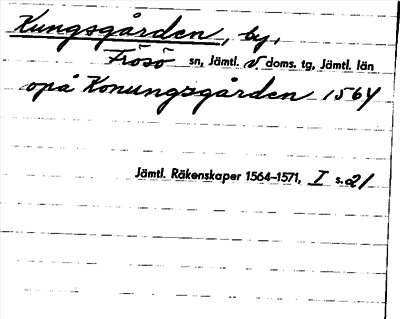 Kungsgården, by,
Frösö sn, Jämtl. V doms. tg, Jämtl. län
opå Konungzgården 1564
Jämtl. Räkenskaper 1564–1571, I s. 21